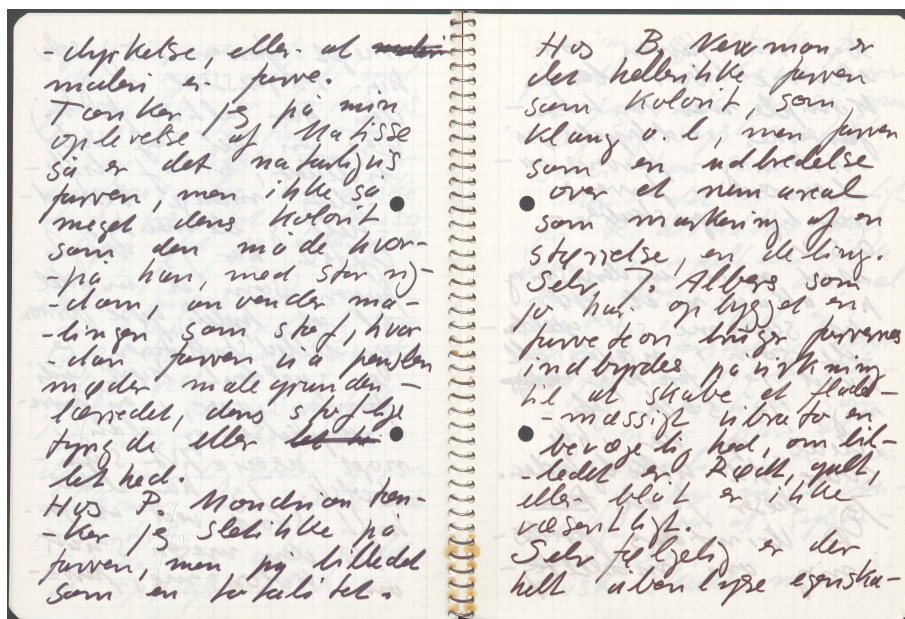 -dyrkelse, eller at
maleri er farve.
Tænker jeg på min
oplevelse af Matisse
så er det naturligvis
farven, men ikke så
meget dens kolorit
som den måde hvor-
-på han, med stor rig-
-dom, anvender ma-
-lingen som stof, hvor
-dan farven via penslen
møder malegrunden -
lærredet, dens stoflige
tyngde eller
lethed.
Hos P. Mondrian tæn-
-ker jeg slet ikke på
farven, men på billedet
som en totalitet.
Hos B. Newman er
det heller ikke farven
som kolorit, som
klang o.l., men farven
som en udbredelse
over et areal
som markering af en
størrelse, en deling.
Selv J. Albers som
jo har opbygget en
farveteori bruger farvernes
indbyrdes påvirkning
til at skabe et flade-
-mæssigt vibrato en
bevægelighed, om bil-
-ledet er Rødt, gult,
eller blåt er ikke
væsentligt.
Selvfølgelig er der
helt åbenlyse egenska-